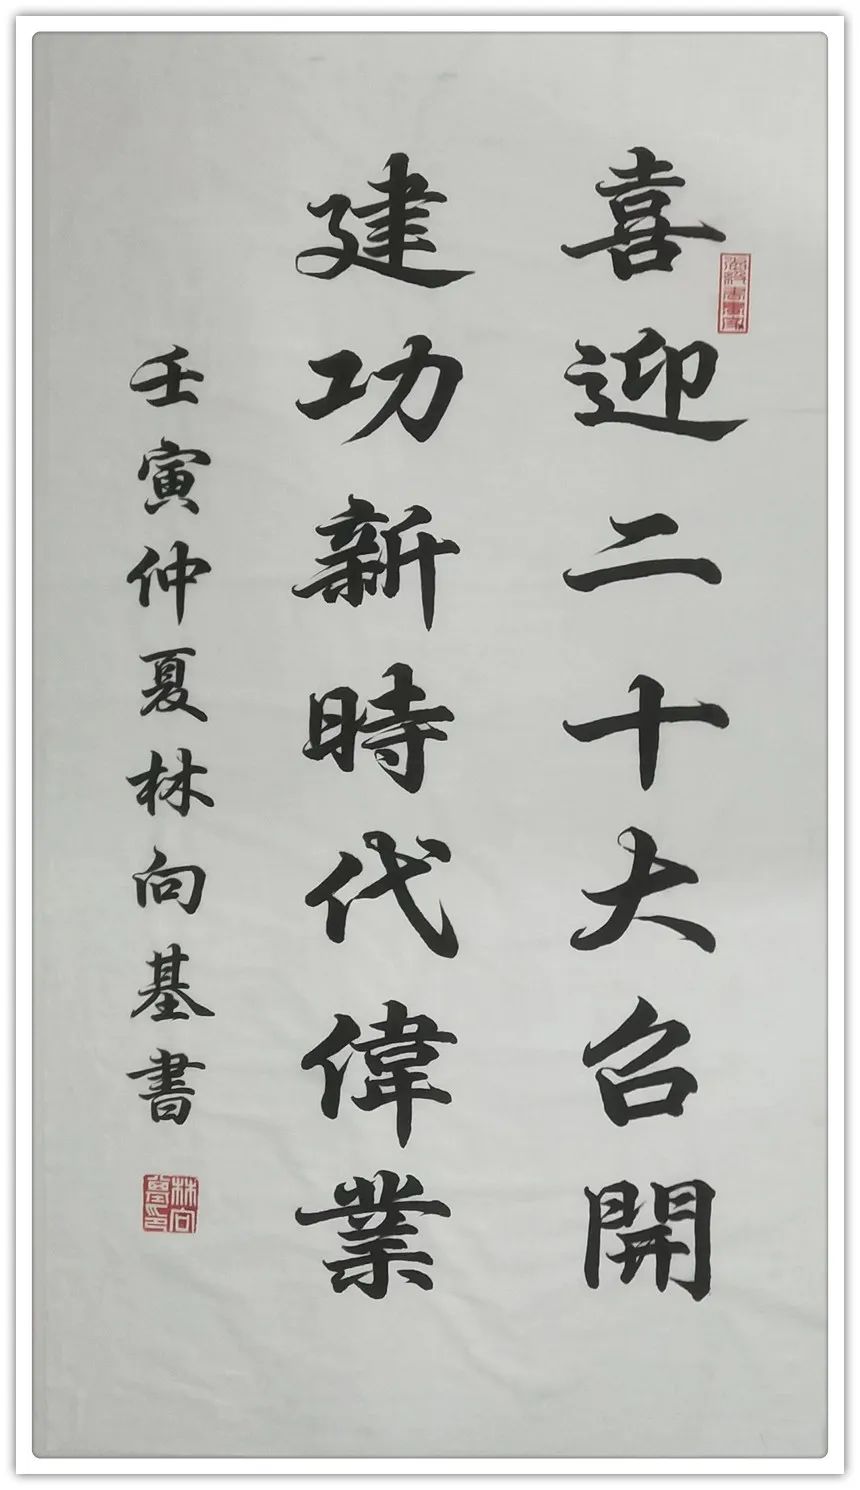 喜迎二十大召開
建功新時代偉業
壬寅仲夏林向基書